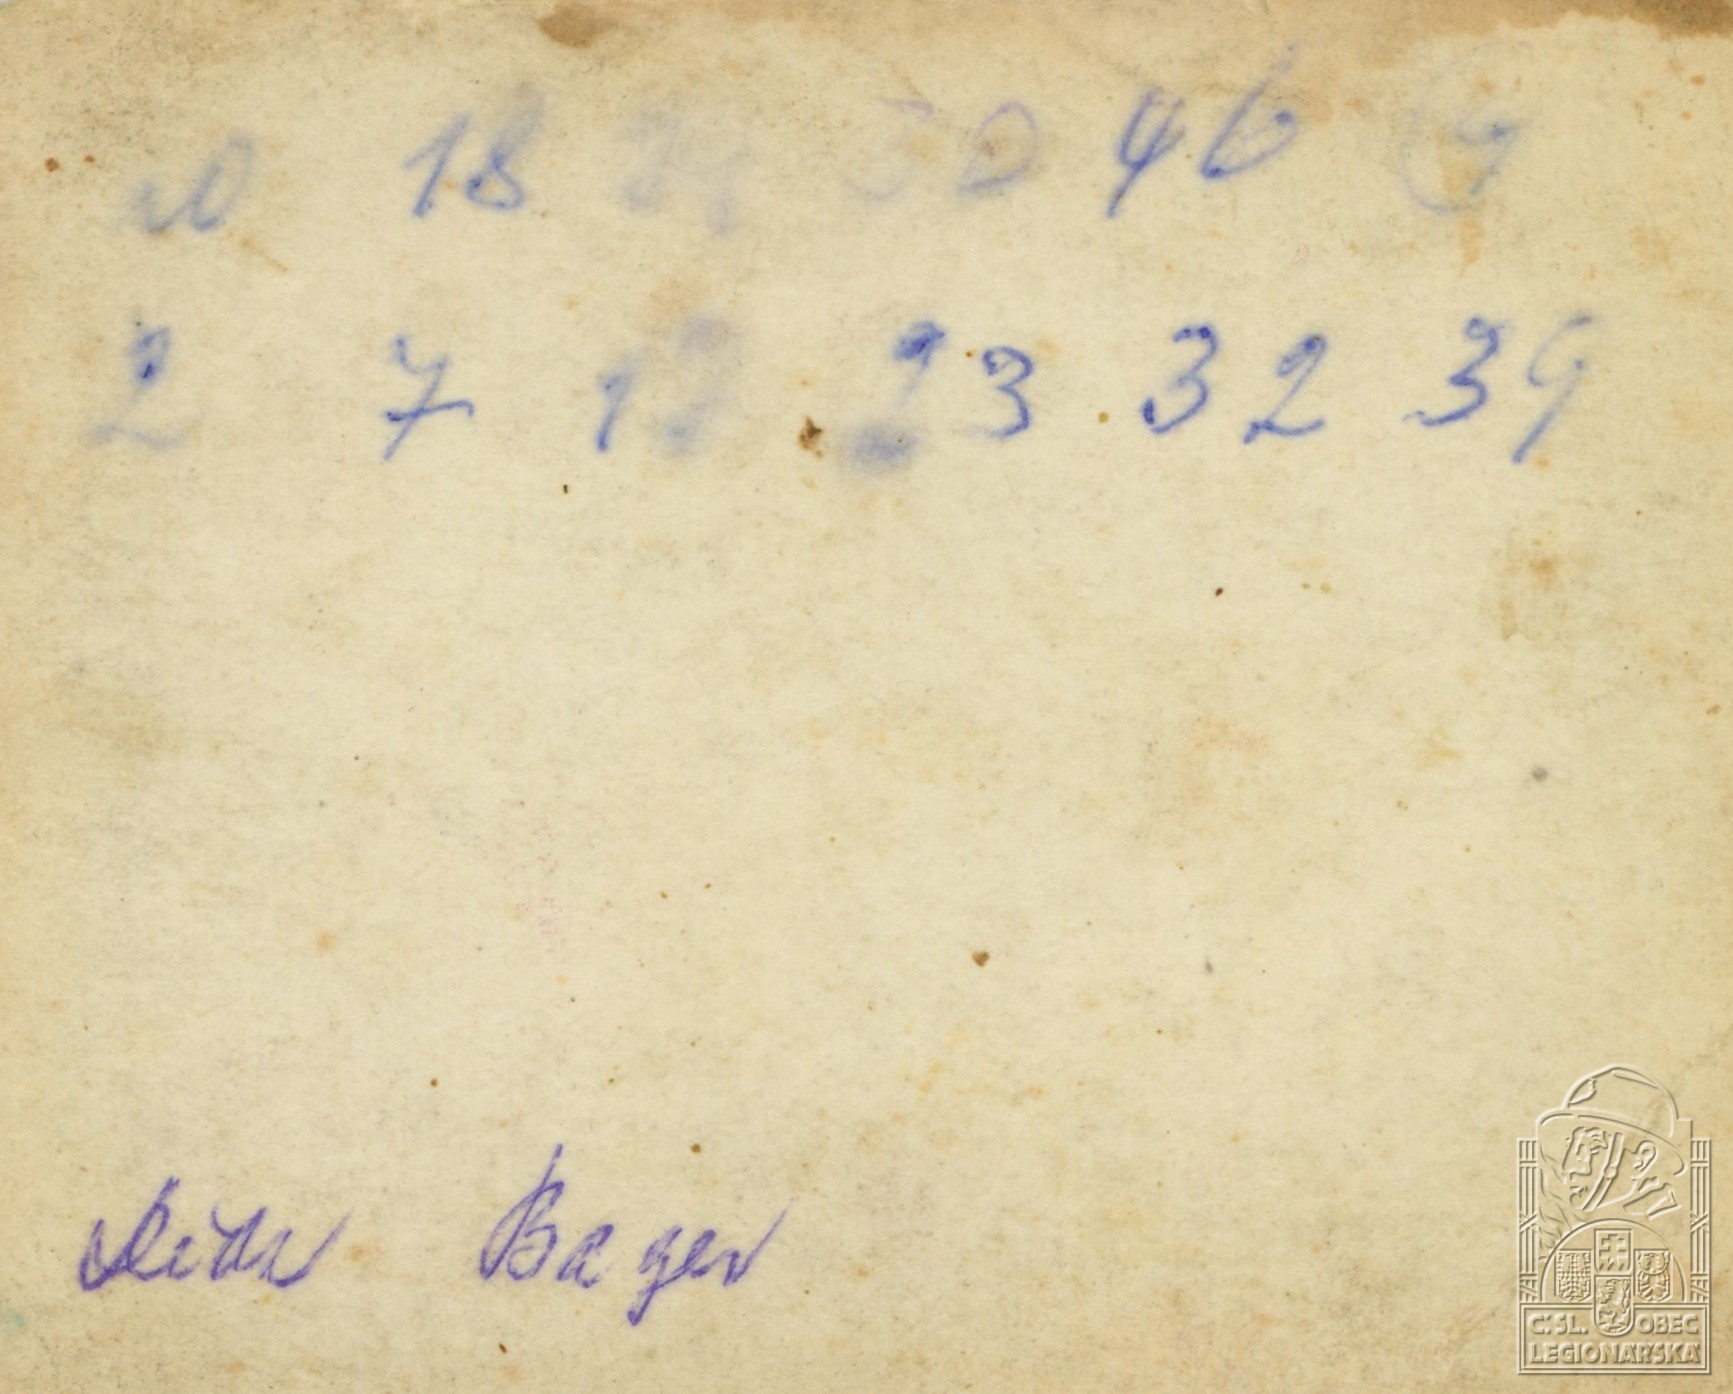 10 18 30 46
2 7 12 23 32 39
Bager
Č.SL. OBEC
LEGIONÁŘSKÁ